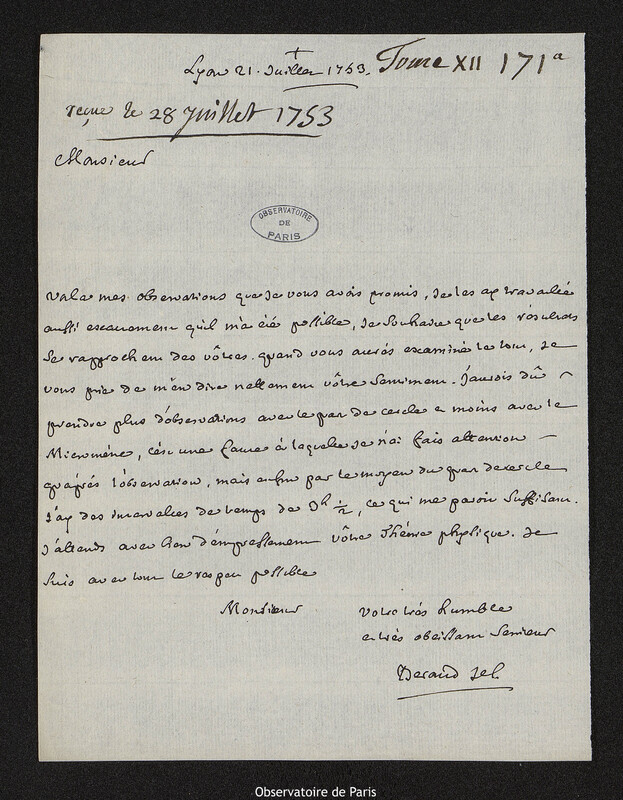 Lyon 21. Juillet 1753. Tome XII 171a
reçue le 28 Juillet 1753
Monsieur
OBSERVATOIRE
DE
PARIS
Voila mes observations que Je vous avois promis, Je les ay travaillé
aussi exactement qu'il m'a été possible, Je souhaite que les résultats
se rapprochent des vôtres. quand vous aurés examiné le tout, Je
vous prie de m'en dire nettement vôtre sentiment. J'aurois dû
prendre plus d'observations avec le quart de cercle et moins avec le
Micromètre, c'est une faute à laquelle Je n'ai fais attention
qu'après l'observation, mais enfin par le moyen du quart de cercle
J'ay des intervalles de temps de 3h 1/2, ce qui me paroit suffisant.
J'attends avec bien d'empressement vôtre Théorie physique. Je
suis avec tout le respect possible
Monsieur
Votre très humble
et très obeissant serviteur
Beraud Jes.
Observatoire de Paris